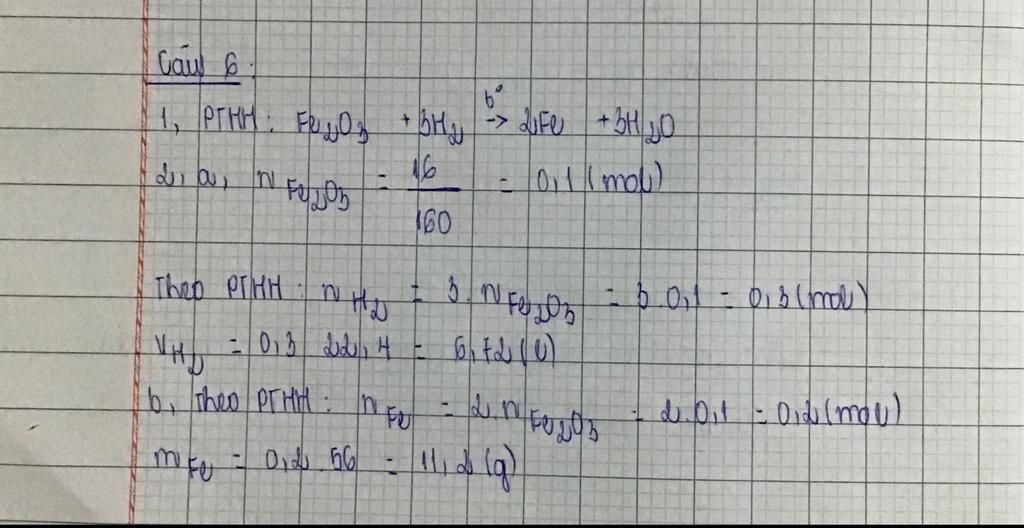 Câu 6:
1, PTHH: Fe₂O₃ + 3H₂ →(t°) 2Fe + 3H₂O
2, a, n Fe₂O₃ = 16/160 = 0,1 (mol)
Theo PTHH: n H₂ = 3. n Fe₂O₃ = 3.0,1 = 0,3 (mol)
V H₂ = 0,3 22,4 = 6,72 (l)
b, Theo PTHH: n Fe = 2. n Fe₂O₃ = 2.0,1 = 0,2 (mol)
m Fe = 0,2 56 = 11,2 (g)